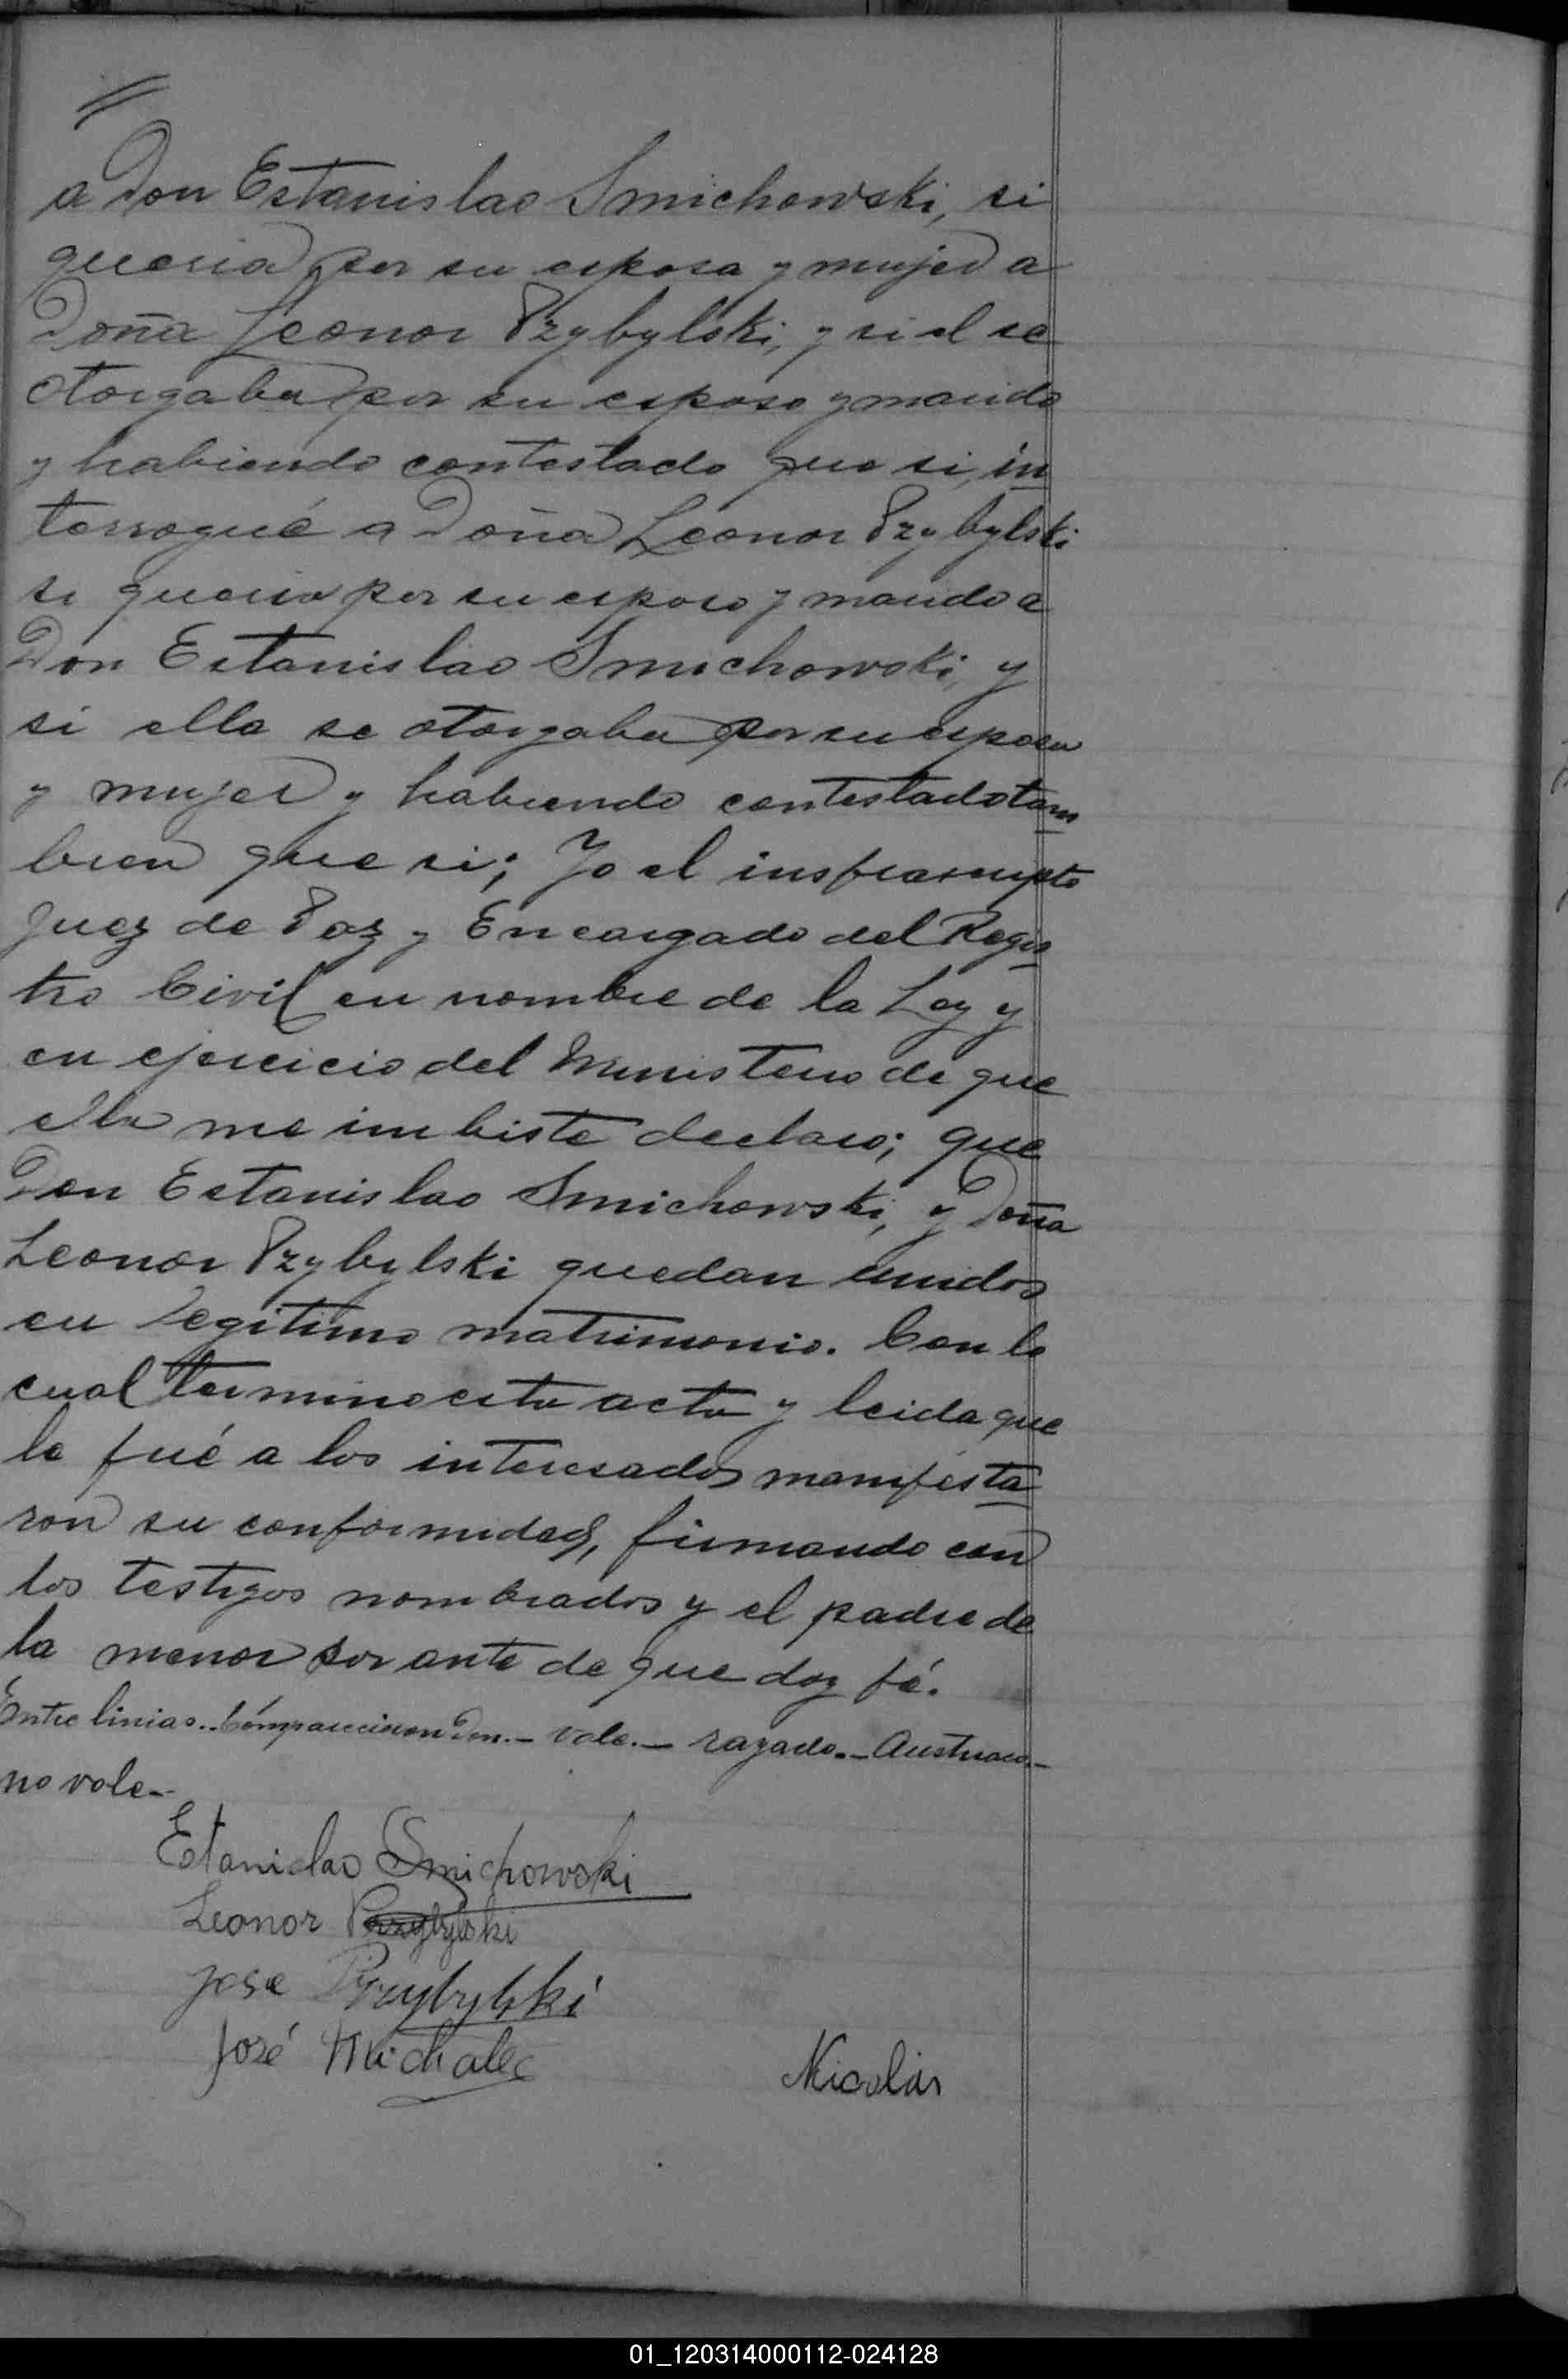 a Don Estanislao Smichowski, si
queria por su esposa y mujer a
Doña Leonor Przybylski, y si el se
otorgaba por su esposo y marido
y habiendo contestado que si, in
terrogué a Doña Leonor Przybylski
si queria por su esposo y marido a
Don Estanislao Smichowski, y
si ella se otorgaba por su esposa
y mujer y habiendo contestado tam
bien que si; Yo el insfrascripto
Juez de Paz y Encargado del Regis
tro Civil en nombre de la Ley y
en ejercicio del Ministerio de que
ella me imbiste declaro; que
Don Estanislao Smichowski, y Doña
Leonor Przybylski quedan unidos
en legitimo matrimonio. Con lo
cual termino esta acta y leida que
le fué a los interesados manifesta
ron su conformidad, firmando con
los testigos nombrados y el padre de
la menor por ante de que doy fé.
Entre linias.. Comparecieron Don.- vale.- razado.- Austriaco.-
no vale-
Estanislao Smichowski
Leonor Przybylski
Jose Przybylski
José Michalec
Nicolás
01_120314000112-024128